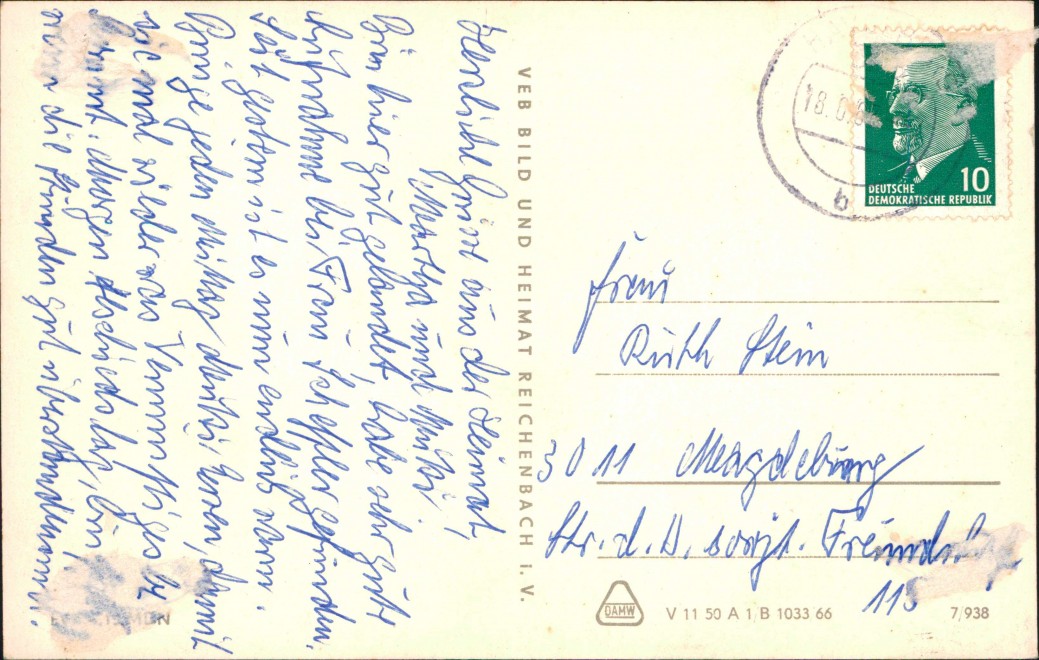 Herzliche Grüße aus der Heimat,
Martha und Mutti,
Bin hier gut gelandet, habe sehr gute
Aufnahme bei Frau Scheffler gefunden.
Seit gestern ist es nun endlich warm.
Bringe jeden Mittag Mutti Essen, damit
sie mal wieder was Vernünftiges
Morgen Abschiedstag, ein
die Stunden gut überstanden
VEB BILD UND HEIMAT REICHENBACH I. V.
18.
b
DEUTSCHE
DEMOKRATISCHE REPUBLIK
10
Frau
Ruth Stein
3011 Magdeburg
Str. d. D. sowjt. Freundsch.
115
DAMW
V 11 50 A 1 B 1033 66
7/938
MDN